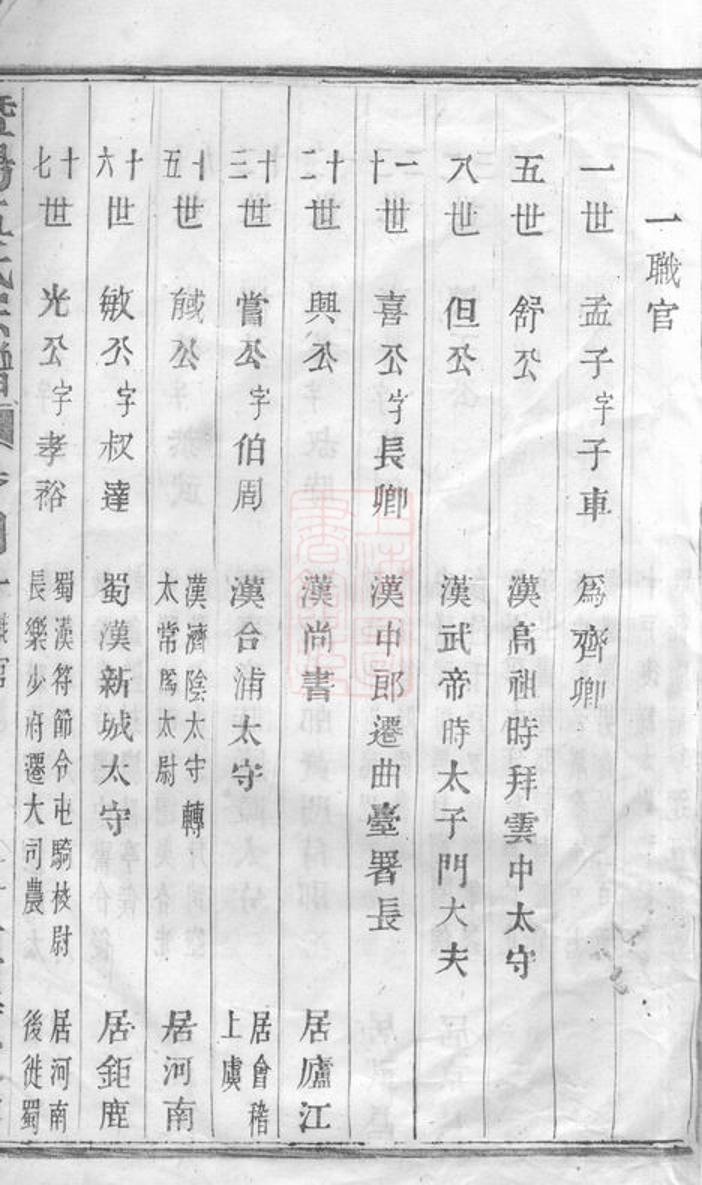 一職官
一世 孟子字子車 爲齊卿
五世 舒公 漢高祖時拜雲中太守
八世 但公 漢武帝時太子門大夫
十一世 喜公字長卿 漢中郎遷曲臺署長
十二世 興公 漢尚書 居廬江
十三世 嘗公字伯周 漢合浦太守 居會稽上虞
十五世 䤋公 漢濟陰太守轉太常爲太尉 居河南
十六世 敏公字叔達 蜀漢新城太守 居鉅鹿
十七世 光公字孝裕 蜀漢符節令屯騎校尉長樂少府遷大司農 居河南後徙蜀